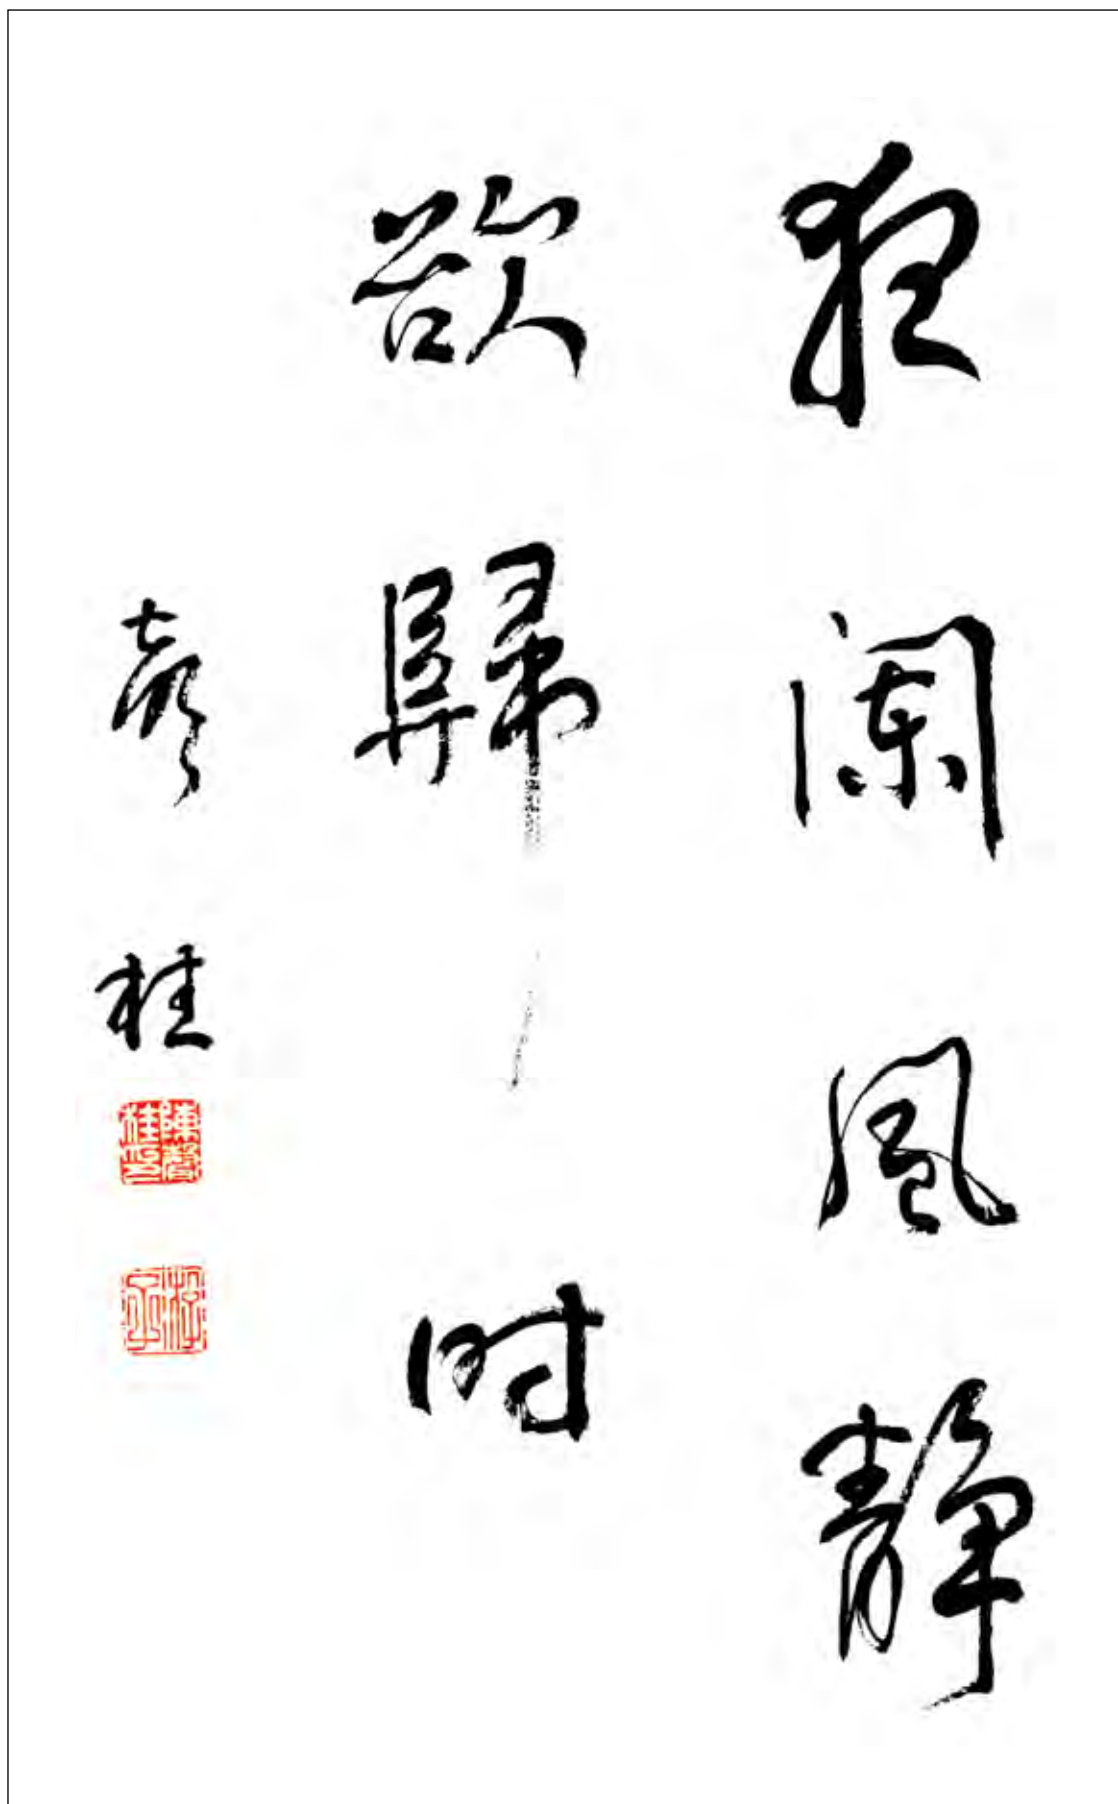 夜闌風靜
欲歸時
聲桂
陳聲桂印